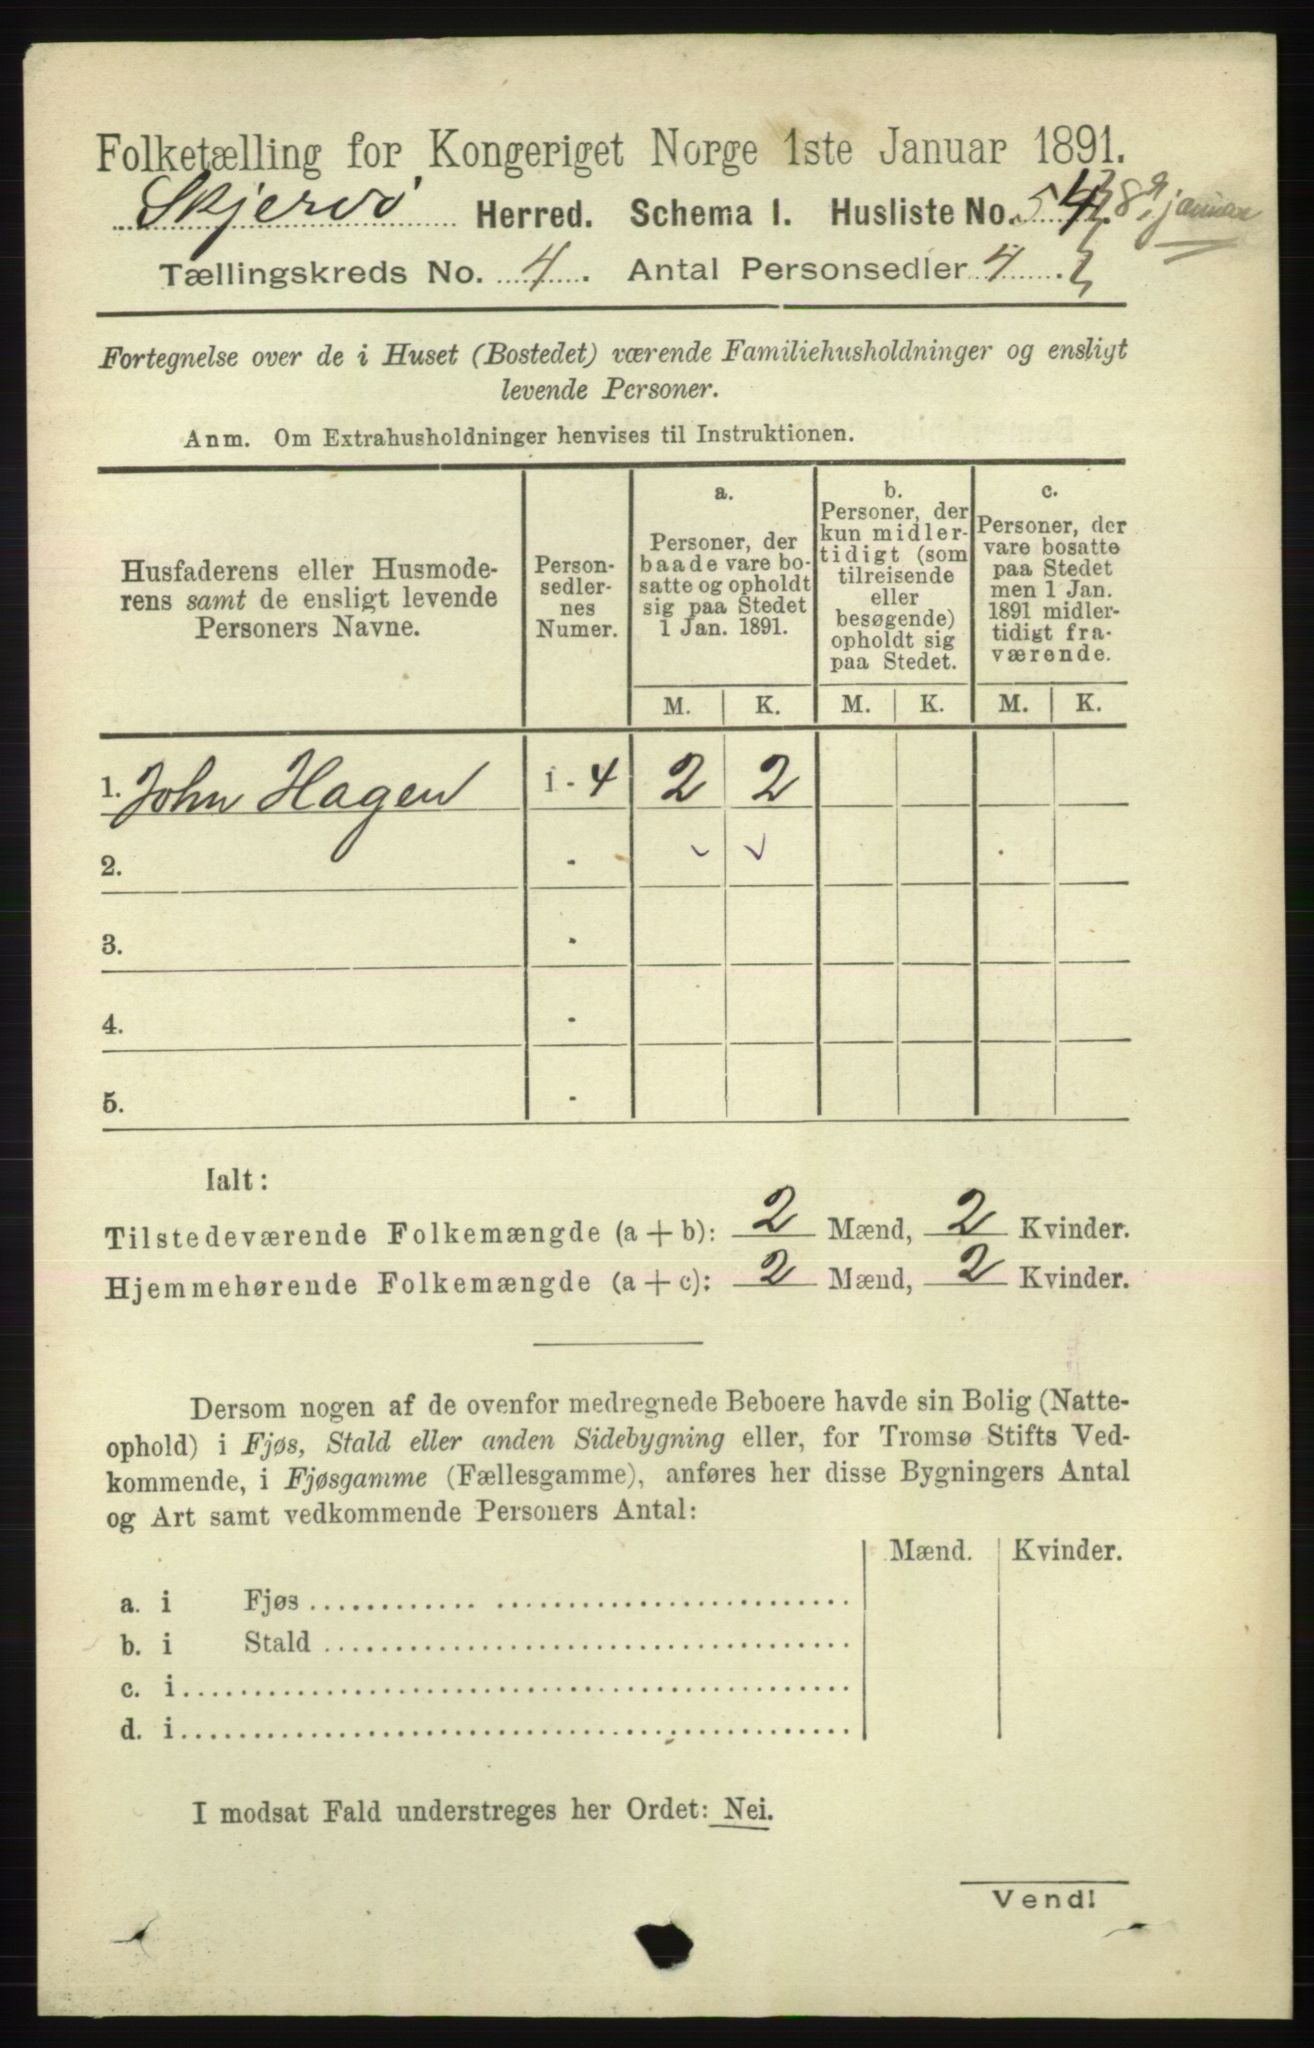 Folketælling for Kongeriget Norge 1ste Januar 1891.
Skjervö Herred. Schema I. Husliste No. 54
Tællingskreds No. 4. Antal Personsedler 4
Fortegnelse over de i Huset (Bostedet) værende Familiehusholdninger og ensligt
levende Personer.
Anm. Om Extrahusholdninger henvises til Instruktionen.
Husfaderens eller Husmode-
rens samt de ensligt levende
Personers Navne.
Person-
sedler-
nes
Numer.
a.
Personer, der
baade vare bo-
satte og opholdt
sig paa Stedet
1 Jan. 1891.
b.
Personer, der
kun midler-
tidigt (som
tilreisende
eller
besøgende)
opholdt sig
paa Stedet.
c.
Personer, der
vare bosatte
paa Stedet
men 1 Jan.
1891 midler-
tidigt fra-
værende.
M. K. M. K. M. K.
1. John Hagen 1 - 4 2 2
2.
3.
4.
5.
Ialt:
Tilstedeværende Folkemængde (a + b): 2 Mænd, 2 Kvinder.
Hjemmehørende Folkemængde (a + c): 2 Mænd, 2 Kvinder.
Dersom nogen af de ovenfor medregnede Beboere havde sin Bolig (Natte-
ophold) i Fjøs, Stald eller anden Sidebygning eller, for Tromsø Stifts Ved-
kommende, i Fjøsgamme (Fællesgamme), anføres her disse Bygningers Antal
og Art samt vedkommende Personers Antal:
Mænd. Kvinder.
a. i Fjøs
b. i Stald
c. i
d. i
I modsat Fald understreges her Ordet: Nei.
Vend!